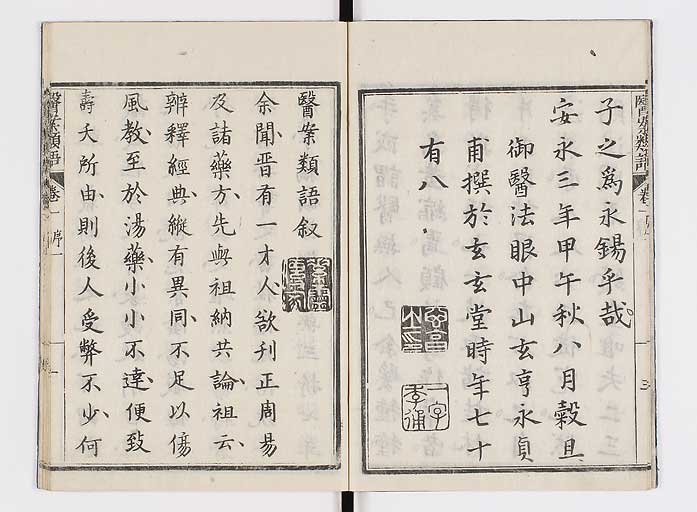 子之爲永錫乎哉
安永三年甲午秋八月穀旦
御醫法眼中山玄亨永貞
甫撰於玄玄堂時年七十
有八
醫案類語叙
余聞晋有一才人欲刋正周易
及諸藥方先與祖納共論祖云
辨釋經典縱有異同不足以傷
風教至於湯藥小小不違便致
壽夭所由則後人受弊不少何
醫案類語
卷一 序
一